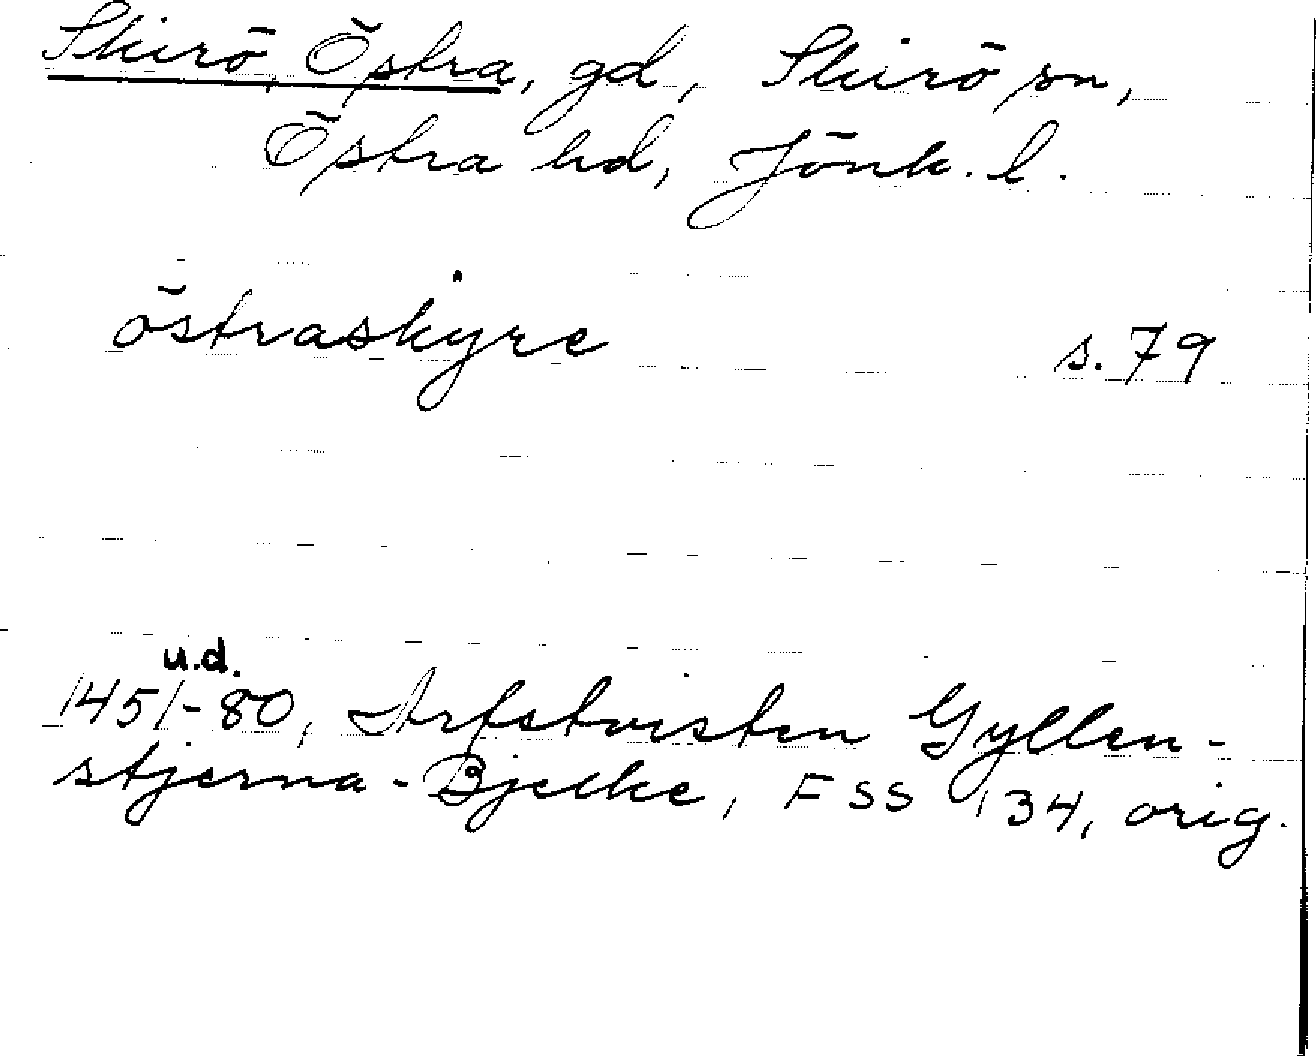 Skirö, Östra, gd, Skirö sn,
Östra hd, Jönk. l.
östraskyre s. 79
u.d.
1451-80, Arfstvisten Gyllen-
stjerna-Bjelke, FSS 134, orig.